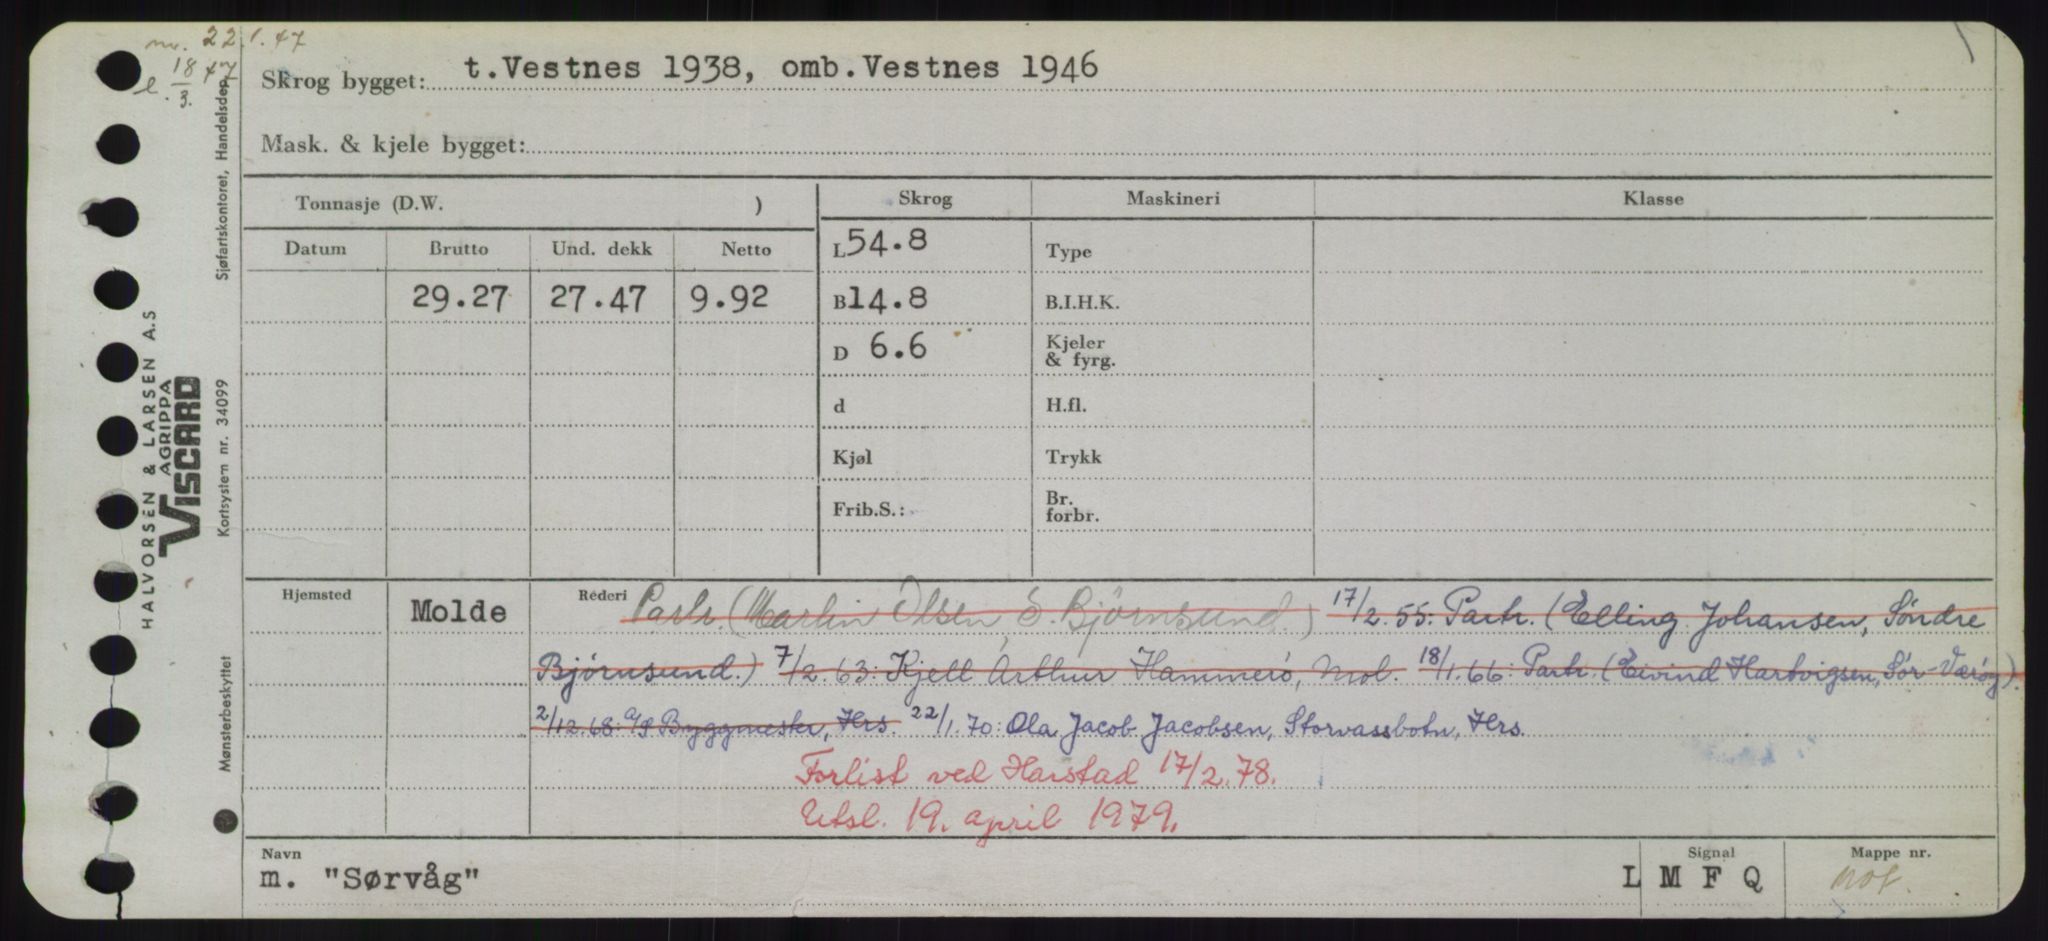 nr. 22.1.47
l. 18/3. 47
Skrog bygget: t.Vestnes 1938, omb.Vestnes 1946
Mask. & kjele bygget:
Tonnasje (D.W. )
Skrog
Maskineri
Klasse
Datum
Brutto
Und. dekk
Netto
L 54.8
Type
29.27
27.47
9.92
B 14.8
B.I.H.K.
D 6.6
Kjeler
& fyrg.
d
H.fl.
Kjøl
Trykk
Frib.S.:
Br.
forbr.
Hjemsted
Molde
Rederi
Partr. (Martin Olsen, S. Bjørnsund.) 17/2.55: Partr. (Elling Johansen, Søndre
Bjørnsund.) 7/2.63: Kjell Arthur Hammerö, Mol. 18/1.66: Partr. (Eivind Hartvigsen, Sør-Værøy).
2/12.68: a/s Byggmester, Hrs. 22/1.70: Ola Jacob Jacobsen, Storvassbotn, Hrs.
Forlist ved Harstad 17/2.78.
Utsl. 19. april 1979.
Navn
m. "Sørvåg"
Signal
L M F Q
Mappe nr.
Sjøfartskontoret, Handelsdep.
HALVORSEN & LARSEN A.S
AGRIPPA
VISCARD
Kortsystem nr. 34099
Mønsterbeskyttet